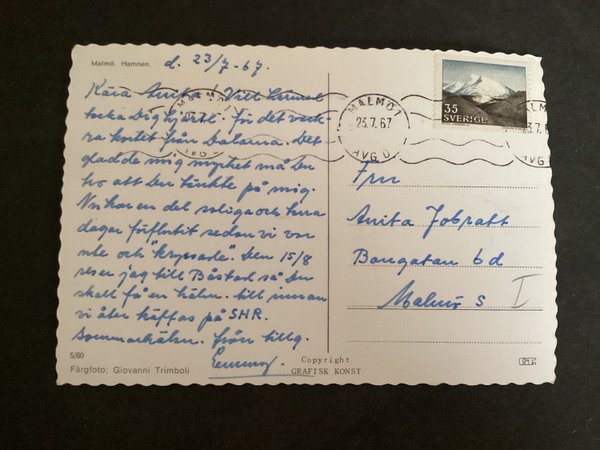 Malmö. Hamnen.
d. 23/7-67.
Kära Anita! Vill härmed
tacka Dig hjärtl. för det vack-
ra kortet från Dalarna. Det
gladde mig mycket må Du
tro att Du tänkte på mig.
Nu har en del soliga och
dagar förflutit sedan vi var
ute och "kryssade". Den 15/8
reser jag till Båstad så Du
skall få en hälsn. till innan
vi åter träffas på SHR.
Sommarhälsn. från tillg.
5/60
Färgfoto: Giovanni Trimboli
Copyright
GRAFISK KONST
MALMÖ 1
23.7.67
AVG D
35
SVERIGE
Fru
Anita
Bangatan 6 d
Malmö S
I